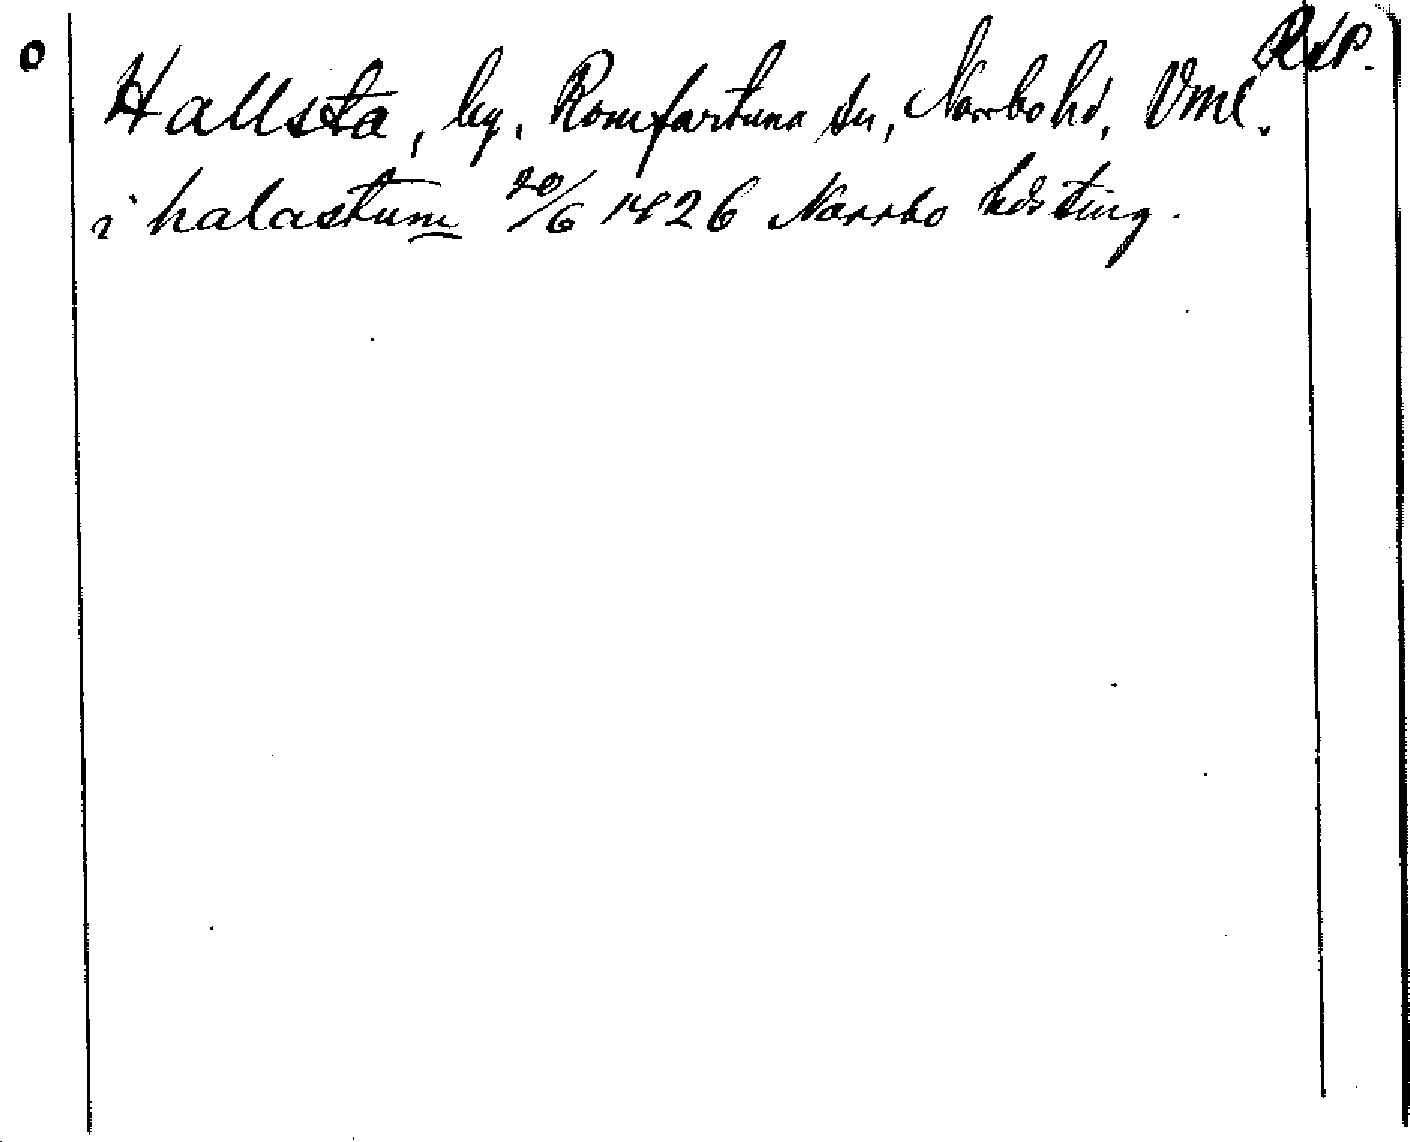 O
RAP.
Hallsta, by, Romfartuna sn, Norrbo hd, Vml.
i halastum 20/6 1426 Norrbo hdsting.